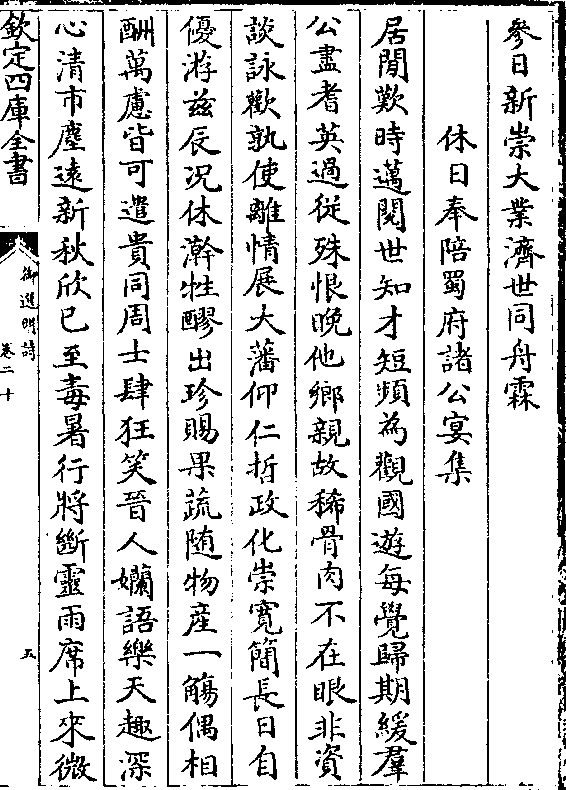 參日新崇大業濟世同舟霖
休日奉陪蜀府諸公宴集
居閒歎時邁閱世知才短頻為觀國遊每覺歸期緩羣
公盡耆英過從殊恨晚他鄉親故稀骨肉不在眼非資
談詠歡孰使離情展大藩仰仁哲政化崇寬簡長日自
優游兹辰况休澣牲醪出珍賜果蔬随物産一觴偶相
酬萬慮皆可遣貴同周士肆狂笑晉人嬾語樂天趣深
心清市塵遠新秋欣已至毒暑行將斷靈雨席上來微
欽定四庫全書
御選明詩
卷二十
五